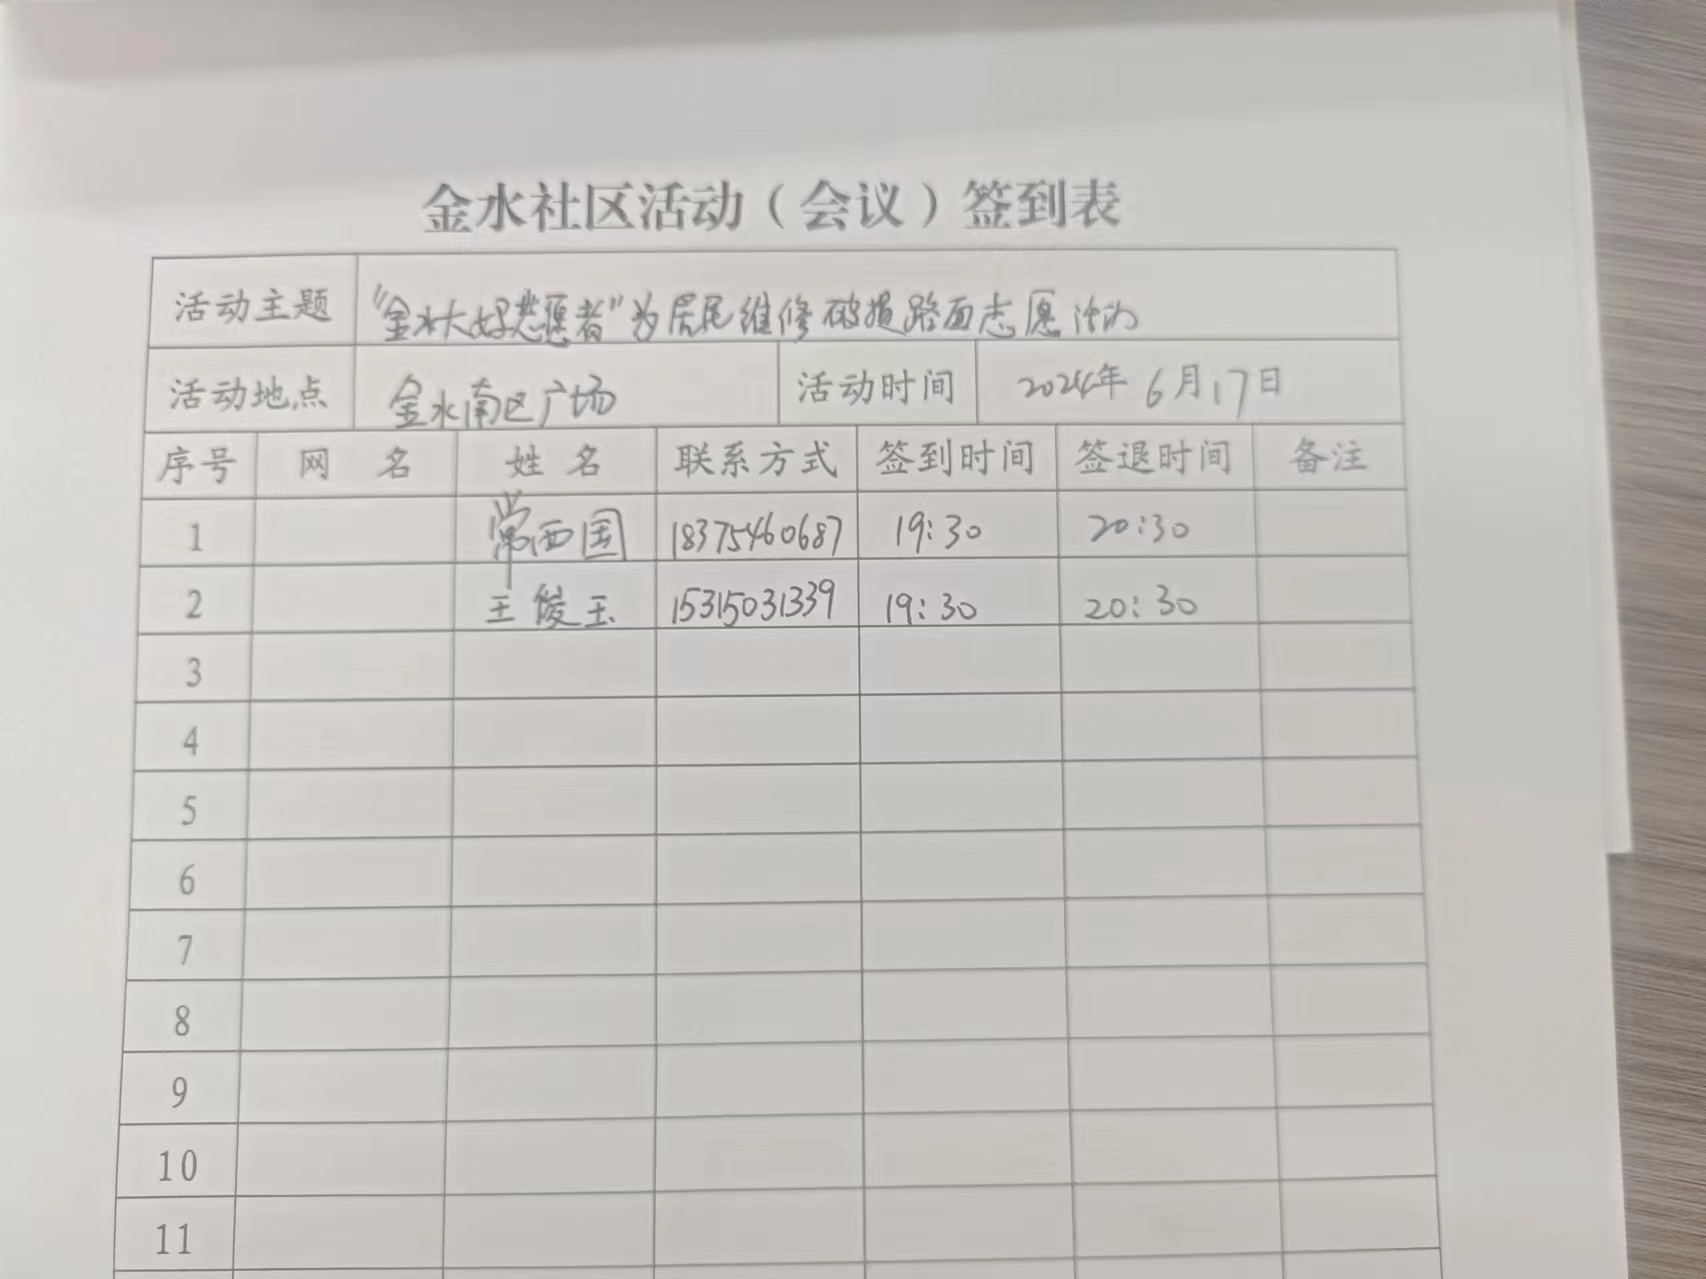 金水社区活动（会议）签到表
活动主题 "金水大好志愿者"为居民维修破损路面志愿活动
活动地点 金水南区广场 活动时间 2024年6月17日
序号 网名 姓名 联系方式 签到时间 签退时间 备注
1 常西国 18375460687 19:30 20:30
2 王俊玉 15315031339 19:30 20:30
3
4
5
6
7
8
9
10
11